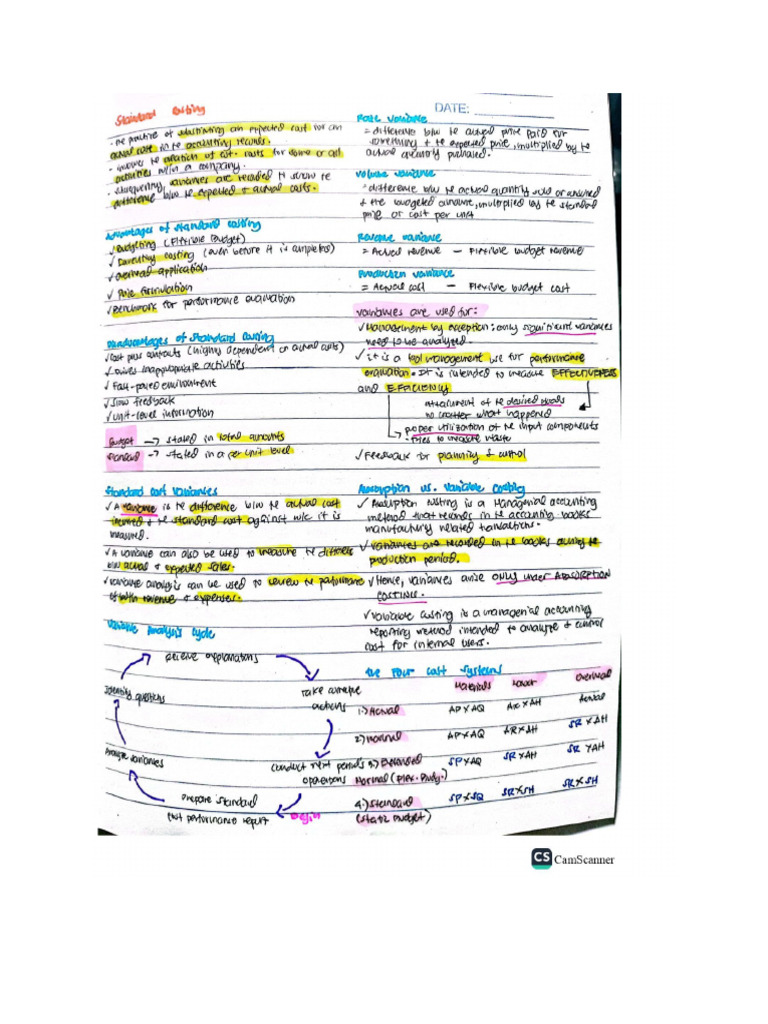 Standard Costing
• The practice of substituting an expected cost for an
actual cost in te accounting records.
• involves te creation of est. costs for some or all
activities w/in a company.
• subsequently, variances are recorded to show te
difference b/w te expected & actual costs.
Advantages of standard costing
✓ Budgeting (Flexible budget)
✓ Inventory costing (even before it is completed)
✓ overhead application
✓ Price formulation
✓ Benchmark for performance evaluation
Disadvantages of standard costing
✓ Cost plus contracts (highly dependent on actual costs)
✓ Drives inappropriate activities
✓ Fast-paced environment
✓ slow feedback
✓ unit-level information
Budget → stated in total amounts
Standard → stated in a per unit level
Standard cost variances
✓ A variance is te difference b/w te actual cost
incurred & te standard cost against wic it is
measured.
✓ A variance can also be used to measure te difference
b/w actual & expected sales.
✓ variance analysis can be used to review te performance
of both revenue & expenses.
Variance Analysis Cycle
receive explanations
Take corrective
actions
conduct next period's
operations
Begin
prepare standard
cost performance report
Analyze variances
Identify questions
DATE:
Rate Variance
= difference b/w te actual price paid for
something & te expected price, multiplied by te
actual quantity purchased.
Volume variance
= difference b/w te actual quantity sold or consumed
& the budgeted amount, multiplied by te standard
price or cost per unit
Revenue variance
= Actual revenue — Flexible budget revenue
Production variance
= Actual cost — Flexible budget cost
variances are used for:
✓ Management by exception: only significant variances
need to be analyzed.
✓ it is a tool management use for performance
evaluation. It is intended to measure EFFECTIVENESS
and EFFICIENCY
attainment of te desired goals
no matter what happened
proper utilization of te input components
tries to measure waste
✓ Feedback for planning & control
Absorption vs. Variable costing
✓ Absorption costing is a managerial accounting
method that records in te accounting books
manufacturing related transactions.
✓ variances are recorded in te books during te
production period.
✓ Hence, variances arise ONLY under ABSORPTION
COSTING.
✓ variable costing is a managerial accounting
reporting method intended to analyze & control
cost for internal users.
The Four Cost Systems
Materials Labor Overhead
1.) Actual AP×AQ AR×AH Actual
2.) normal AP×AQ AR×AH SR×AH
3.) Extended SP×AQ SR×AH SR×AH
Normal (Flex. Budg.)
4.) Standard SP×SQ SR×SH SR×SH
(static budget)
CS CamScanner